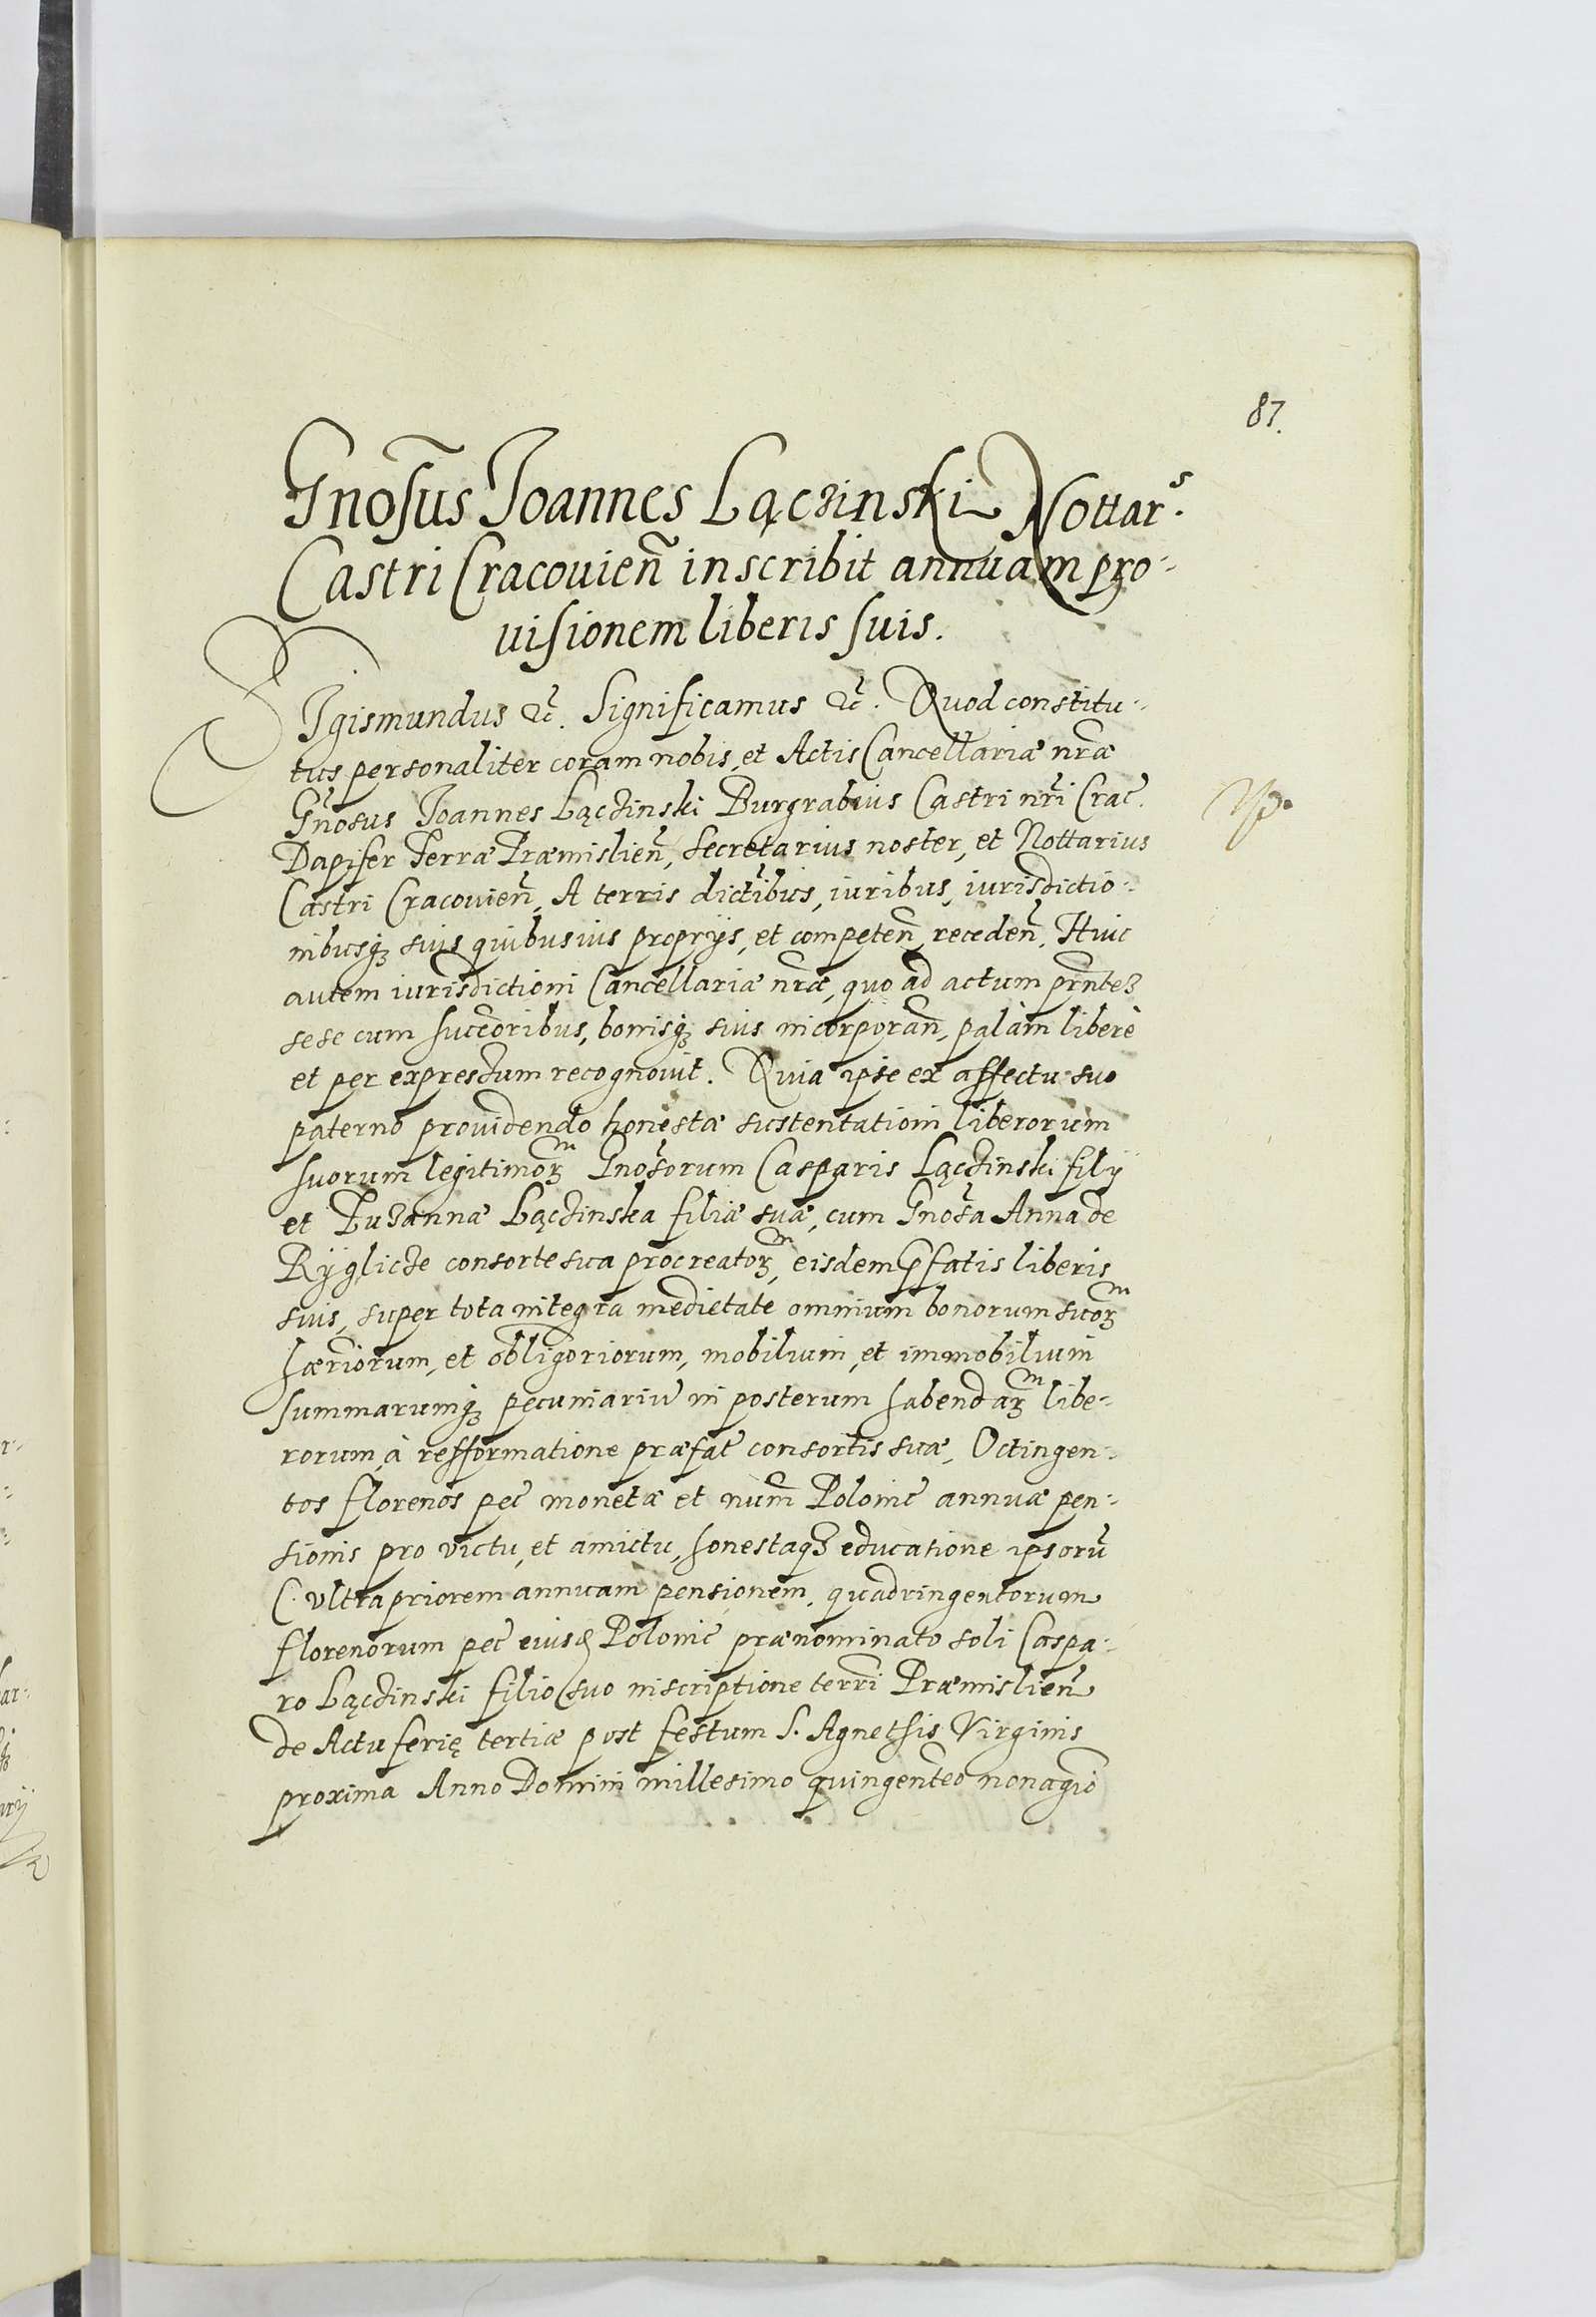 87.
Gnosus Joannes Łączinski Nottars.
Castri Cracouien inscribit annuam pro-
uisionem liberis suis.
Sigismundus etc. Significamus etc. Quod constitu-
tus personaliter coram nobis, et Actis Cancellariæ nræ
Gnosus Joannes Łączinski Burgrabius Castri nri Crac.
Dapifer Terræ Præmislien, Secretarius noster, et Nottarius
Castri Cracouien, A terris distibus, iuribus, iurisdictio-
nibusq suis quibusuis proprijs, et competen, receden, Huic
autem iurisdictioni Cancellariæ nræ, quo ad actum prntez
sese cum succoribus, bonisq suis incorporan, palàm liberè
et per expressum recognouit. Quia ipse ex affectu suo
paterno prouidendo honestæ sustentationi liberorum
suorum legitimorum Gnosorum Casparis Łączinski filij
et Zuzannæ Łączinska filiæ suæ, cum Gnosa Anna de
Ryglicze consorte sua procreatorum, eisdem pfatis liberis
suis, super tota integra medietate omnium bonorum suorum
hæriorum, et obligoriorum, mobilium, et immobilium
summarumq pecuniariu in posterum habendarum libe-
rorum à refformatione præfat consortis suæ, Octingen-
tos florenos pec monetæ et num Polonic annuæ pen-
sionis pro victu, et amictu, honestaqz educatione ipsorū
(. vltra priorem annuam pensionem, quadringentorum
florenorum pec eiusd Polonic prænominato soli Caspa-
ro Łączinski filio suo inscriptione terri Præmislien
de Actu ferię tertiæ post festum S. Agnethis Virginis
proxima Anno Domini millesimo quingenteo nonagio